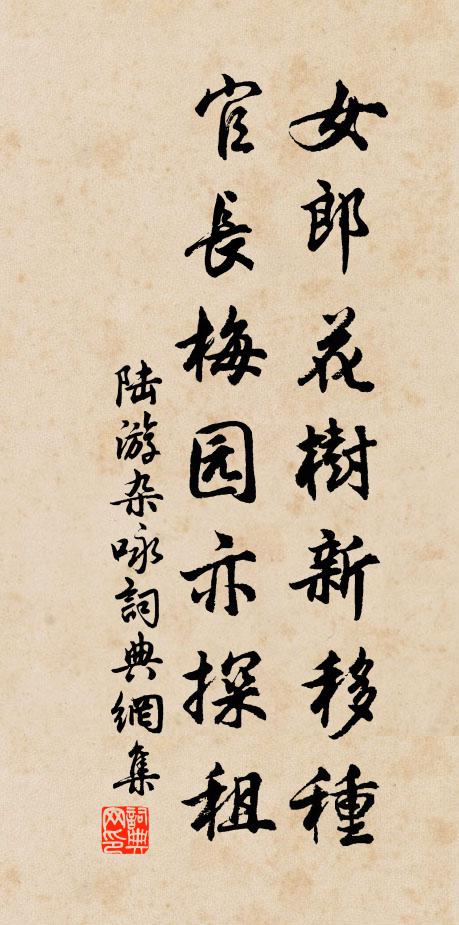 女郎花樹新移種
官長梅园亦探租
陆游杂咏詞典網集
詞典网印